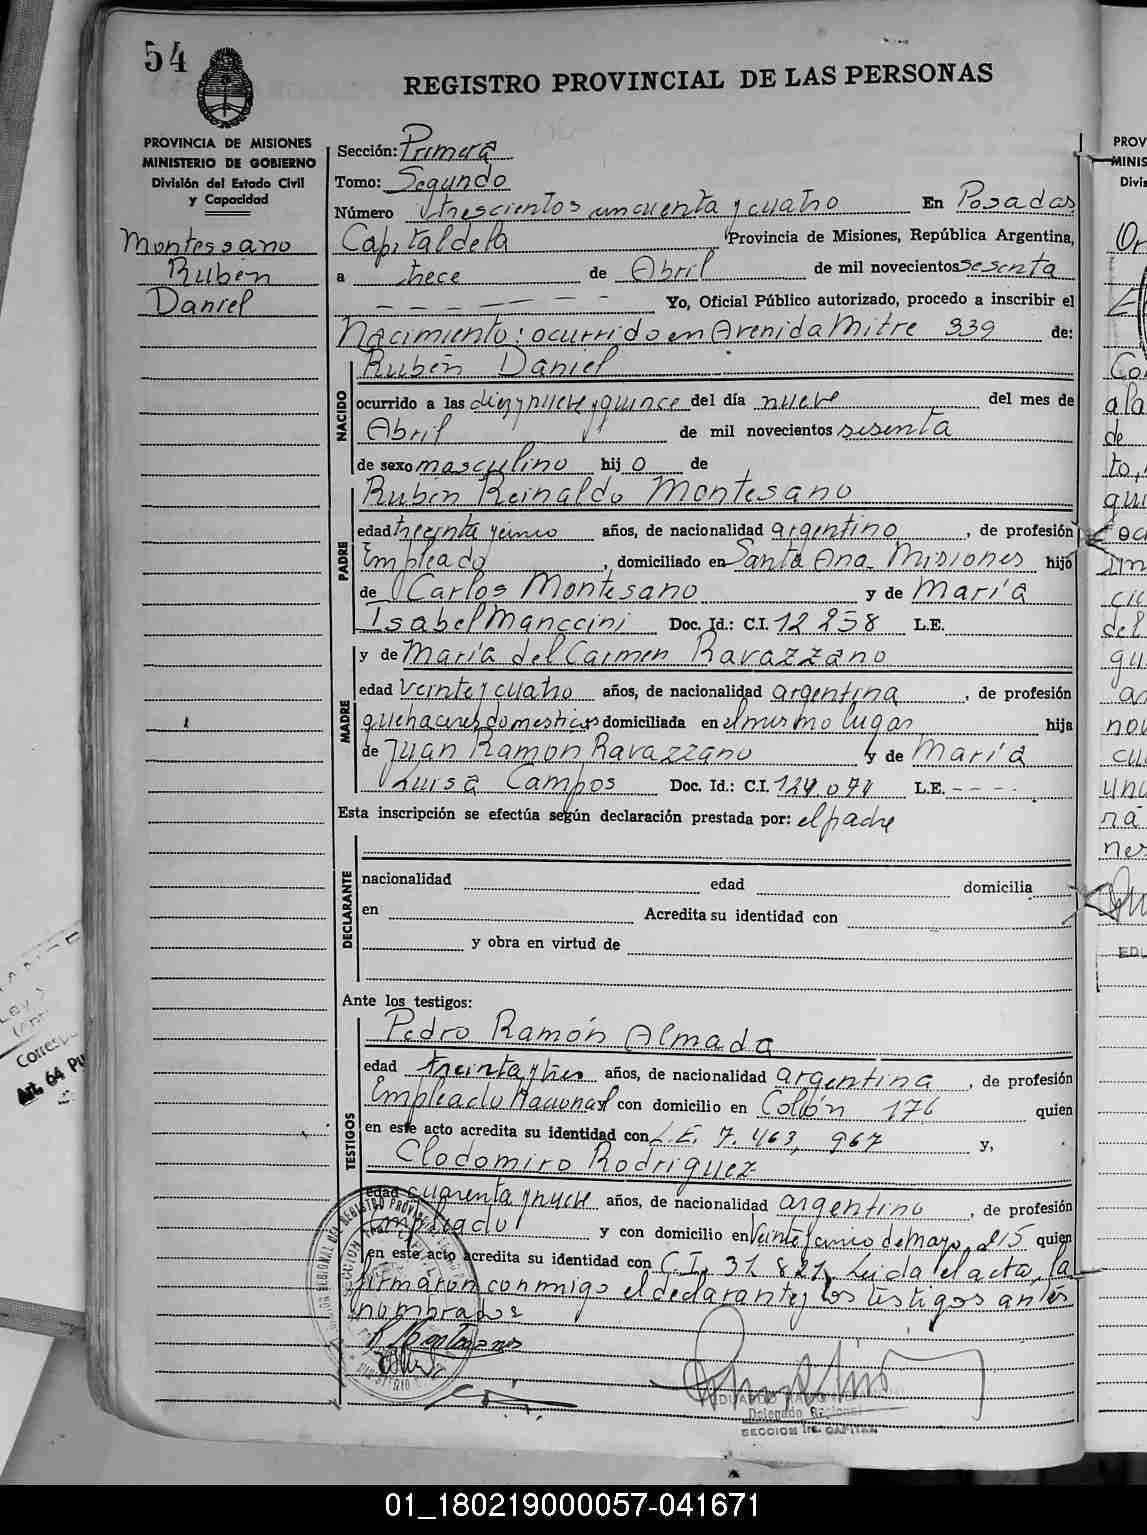 54
REGISTRO PROVINCIAL DE LAS PERSONAS
PROVINCIA DE MISIONES
MINISTERIO DE GOBIERNO
División del Estado Civil
y Capacidad
Montessano
Rubén
Daniel
Sección: Primera
Tomo: Segundo
Número trescientos cincuenta y cuatro En Posadas
Capital de la Provincia de Misiones, República Argentina,
a trece de Abril de mil novecientos sesenta
Yo, Oficial Público autorizado, procedo a inscribir el
Nacimiento: ocurrido en Avenida Mitre 339 de:
NACIDO
Rubén Daniel
ocurrido a las diez y nueve y quince del día nueve del mes de
Abril de mil novecientos sesenta
de sexo masculino hijo de
PADRE
Rubén Reinaldo Montesano
edad treinta y cinco años, de nacionalidad argentino, de profesión
Empleado, domiciliado en Santa Ana Misiones hijo
de Carlos Montesano y de María
Isabel Manccini Doc. Id.: C.I. 12 258 L.E.
MADRE
y de María del Carmen Ravazzano
edad veinte y cuatro años, de nacionalidad argentina, de profesión
quehaceres domesticos domiciliada en el mismo lugar hija
de Juan Ramon Ravazzano y de María
Luisa Campos Doc. Id.: C.I. 124.074 L.E. - - - -
Esta inscripción se efectúa según declaración prestada por: el padre
DECLARANTE
nacionalidad edad domicilia
en Acredita su identidad con
y obra en virtud de
Ante los testigos:
TESTIGOS
Pedro Ramón Almada
edad treinta y tres años, de nacionalidad argentina, de profesión
Empleado Nacional con domicilio en Colón 176 quien
en este acto acredita su identidad con L.E. 7.463,967 y,
Clodomiro Rodriguez
edad cuarenta y nueve años, de nacionalidad argentino, de profesión
Empleado y con domicilio en Veinte cinco de Mayo 215 quien
en este acto acredita su identidad con C.I. 31 821. Leida el acta, la
firmaron conmigo el declarante y los testigos antes
nombrados
Delegado Regional
SECCION 1ra. CAPITAL
Corresp
Art. 64
PROV
MINIS
Divis
01_180219000057-041671